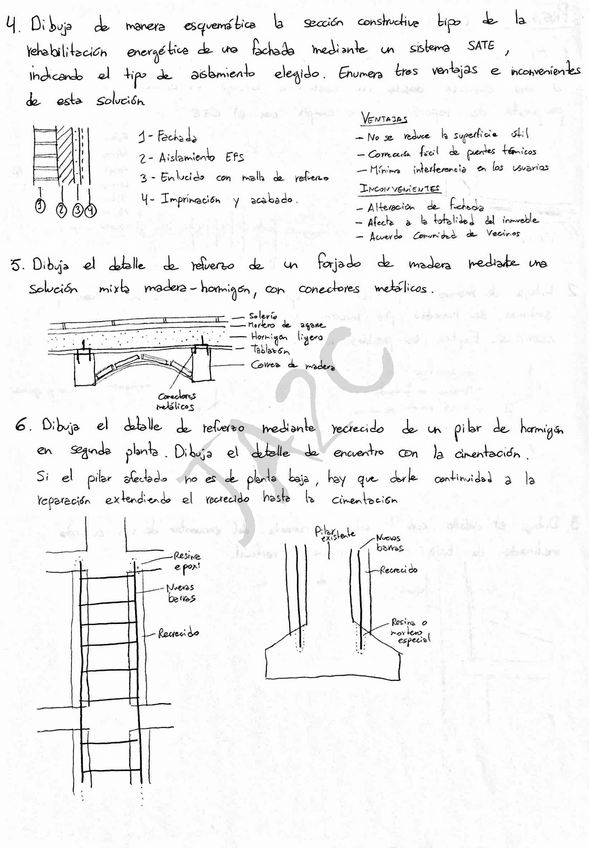 4. Dibuja de manera esquemática la sección constructiva tipo de la
rehabilitación energética de una fachada mediante un sistema SATE,
indicando el tipo de aislamiento elegido. Enumera tres ventajas e inconvenientes
de esta solución
1- Fachada
2- Aislamiento EPS
3- Enlucido con malla de refuerzo
4- Imprimación y acabado.
① ② ③ ④
VENTAJAS
- No se reduce la superficie útil
- Corrección fácil de puentes térmicos
- Mínima interferencia en los usuarios
INCONVENIENTES
- Alteración de fachada
- Afecta a la totalidad del inmueble
- Acuerdo Comunidad de Vecinos
5. Dibuja el detalle de refuerzo de un forjado de madera mediante una
solución mixta madera-hormigón, con conectores metálicos.
Solería
Mortero de agarre
Hormigón ligero
Tablazón
Correa de madera
Conectores
metálicos
JA2C
6. Dibuja el detalle de refuerzo mediante recrecido de un pilar de hormigón
en segunda planta. Dibuja el detalle de encuentro con la cimentación.
Si el pilar afectado no es de planta baja, hay que darle continuidad a la
reparación extendiendo el recrecido hasta la cimentación
Resina
epoxi
Nuevas
barras
Recrecido
Pilar
existente
Nuevas
barras
Recrecido
Resina o
mortero
especial